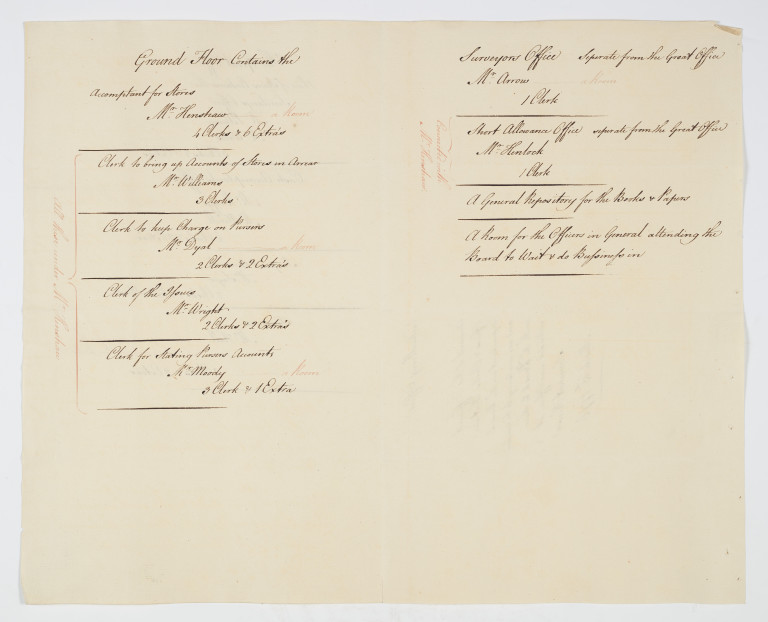 Ground Floor Contains the
Accomptant for Stores
Mr. Henshaw
4 Clerks & 6 Extra's
Clerk to bring up Accounts of Stores in Arrear
Mr. Williams
3 Clerks
Clerk to keep Charge on Pursers
Mr. Dyal
2 Clerks & 2 Extra's
Clerk of the Issues
Mr. Wright
2 Clerks & 2 Extra's
Clerk for Stating Pursers Accounts
Mr. Moody
3 Clerk & 1 Extra
All these under Mr. Henshaw
Surveyors Office Seperate from the Great Office
Mr. Arrow
1 Clerk
Short Allowance Office seperate from the Great Office
Mr. Henlock
1 Clerk
A General Repository for the Books & Papers
A Room for the Officers in General attending the
Board to Wait & do Bussiness in
Mr. Henshaw